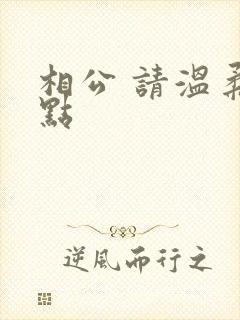 相公 請溫柔
點
逆風而行之